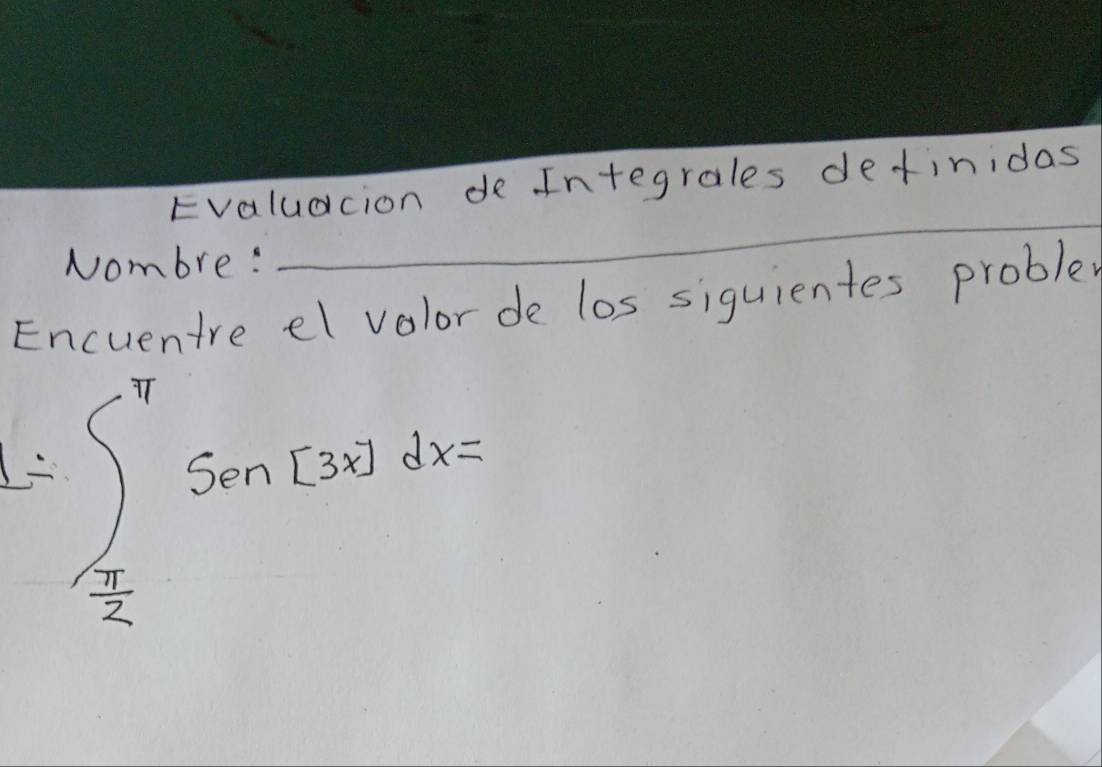 Evaluacion de Integrales definidas
Nombre:
Encuentre el valor de los siguientes
1÷ ∫ π π/2 Sen [3x] dx=